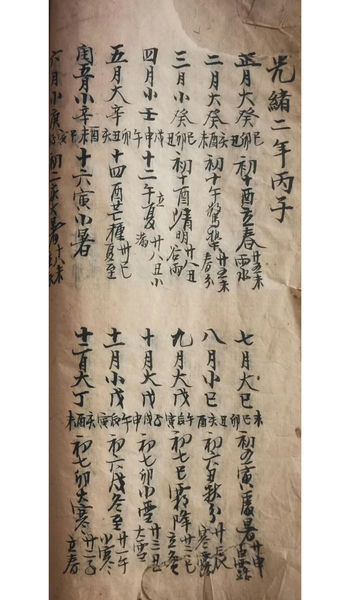 光緒二年丙子
正月大癸巳卯丑初十酉立春廿五未雨水
二月大癸亥酉未初十午驚蟄廿五未春分
三月小癸巳卯丑初十酉清明廿六丑谷雨
四月小壬戌申午十二午立夏廿八丑小滿
五月大辛卯丑亥十四酉芒種巳夏至
閏五月小辛酉未巳十六寅小暑
六月小庚寅初二大暑十八未
七月大巳未巳卯初五寅處暑廿申白露
八月小巳丑亥酉初六丑秋分廿辰寒露
九月大戊午辰寅初七巳霜降廿二巳立冬
十月大戊子戌申初七卯小雪廿二丑大雪
十一月小戊午辰寅初六戌冬至廿一午小寒
十二月大丁亥酉未初七卯大寒廿二子立春